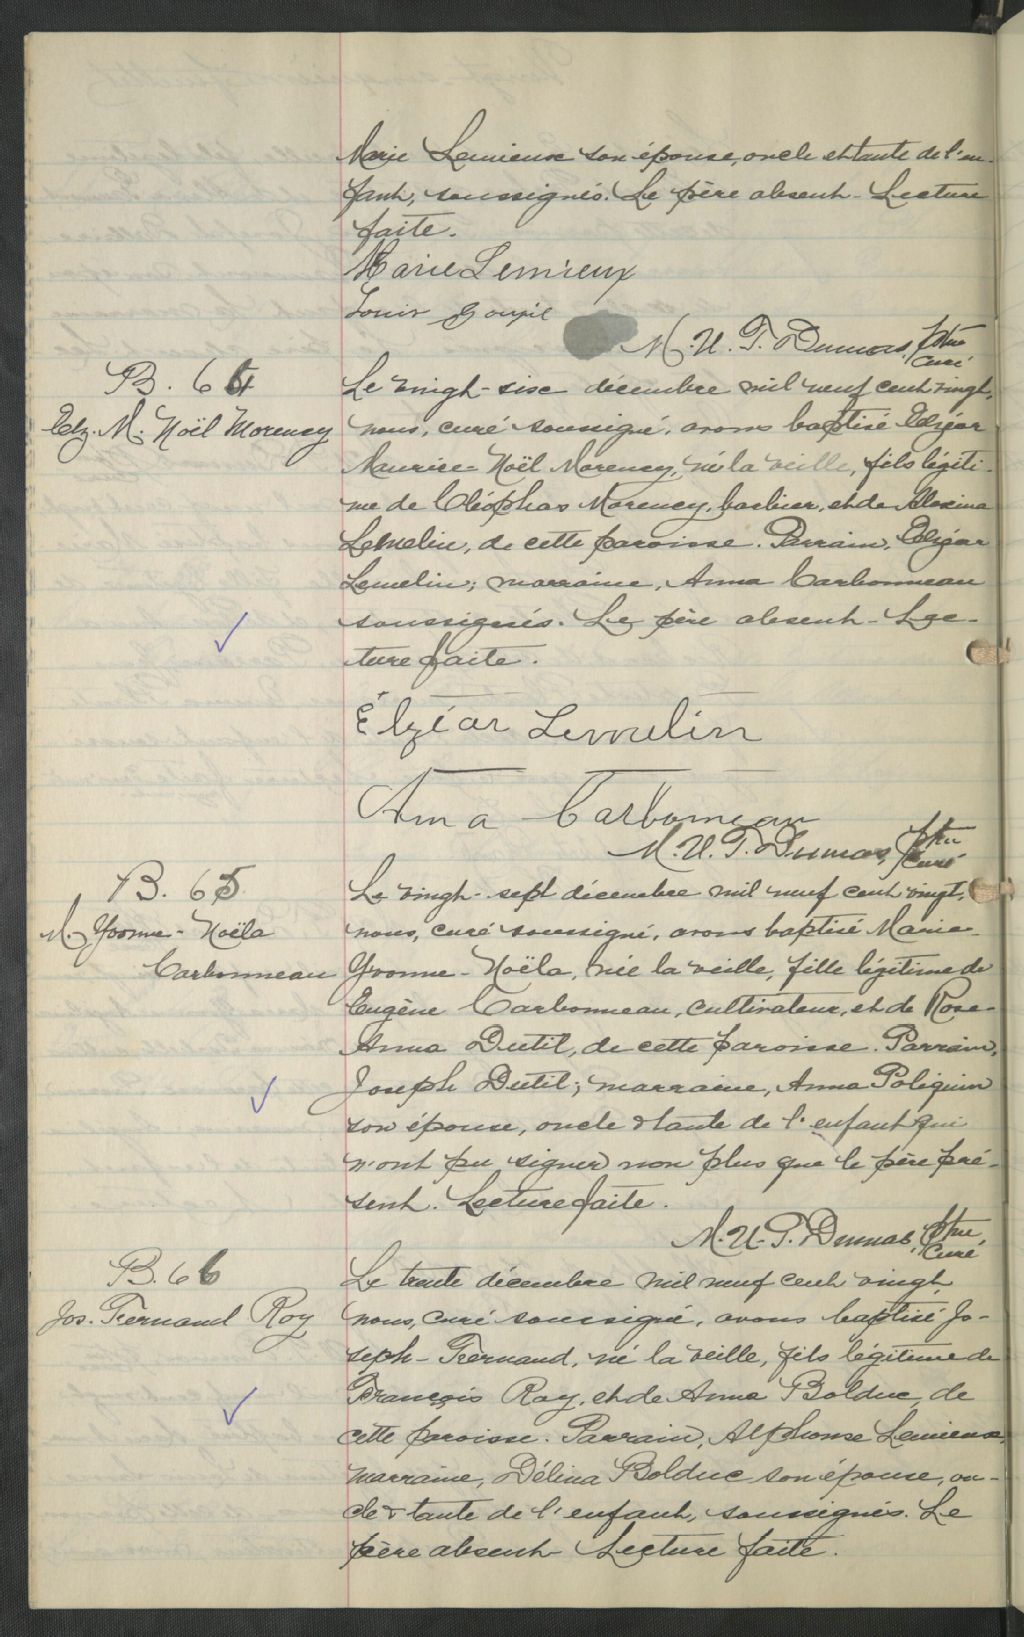 Marie Lemieux son épouse, oncle et tante de l'en-
fant, soussignés. Le père absent - Lecture
faite.
Marie Lemieux
Louis Goupil
M. U. T. Dumas, ptre
curé
B. 64
Elz. M. Noël Morency
Le vingt-six décembre mil neuf cent vingt,
nous, curé soussigné, avons baptisé Elzéar
Maurice-Noël Morency, né la veille, fils légiti-
me de Cléophas Morency, barbier, et de Alexina
Lemelin, de cette paroisse. Parrain, Elzéar
Lemelin; marraine, Anna Carbonneau
soussignés. Le père absent - Lec-
ture faite.
Élzéar Lemelin
Anna Carbonneau
M. U. T. Dumas, ptre
curé
B. 65
M. Yvonne-Noëla
Carbonneau
Le vingt-sept décembre mil neuf cent vingt,
nous, curé soussigné, avons baptisé Marie-
Yvonne-Noëla, née la veille, fille légitime de
Eugène Carbonneau, cultivateur, et de Rose-
Anna Dutil, de cette paroisse. Parrain,
Joseph Dutil; marraine, Anna Poliquin
son épouse, oncle & tante de l'enfant qui
n'ont pu signer non plus que le père pré-
sent. Lecture faite.
M. U. T. Dumas, ptre,
curé
B. 66
Jos. Fernand Roy
Le trente décembre mil neuf cent vingt
nous, curé soussigné, avons baptisé Jo-
seph-Fernand, né la veille, fils légitime de
François Roy, et de Anna Bolduc, de
cette paroisse. Parrain, Alphonse Lemieux,
marraine, Délina Bolduc son épouse, on-
cle & tante de l'enfant, soussignés. Le
père absent - Lecture faite.